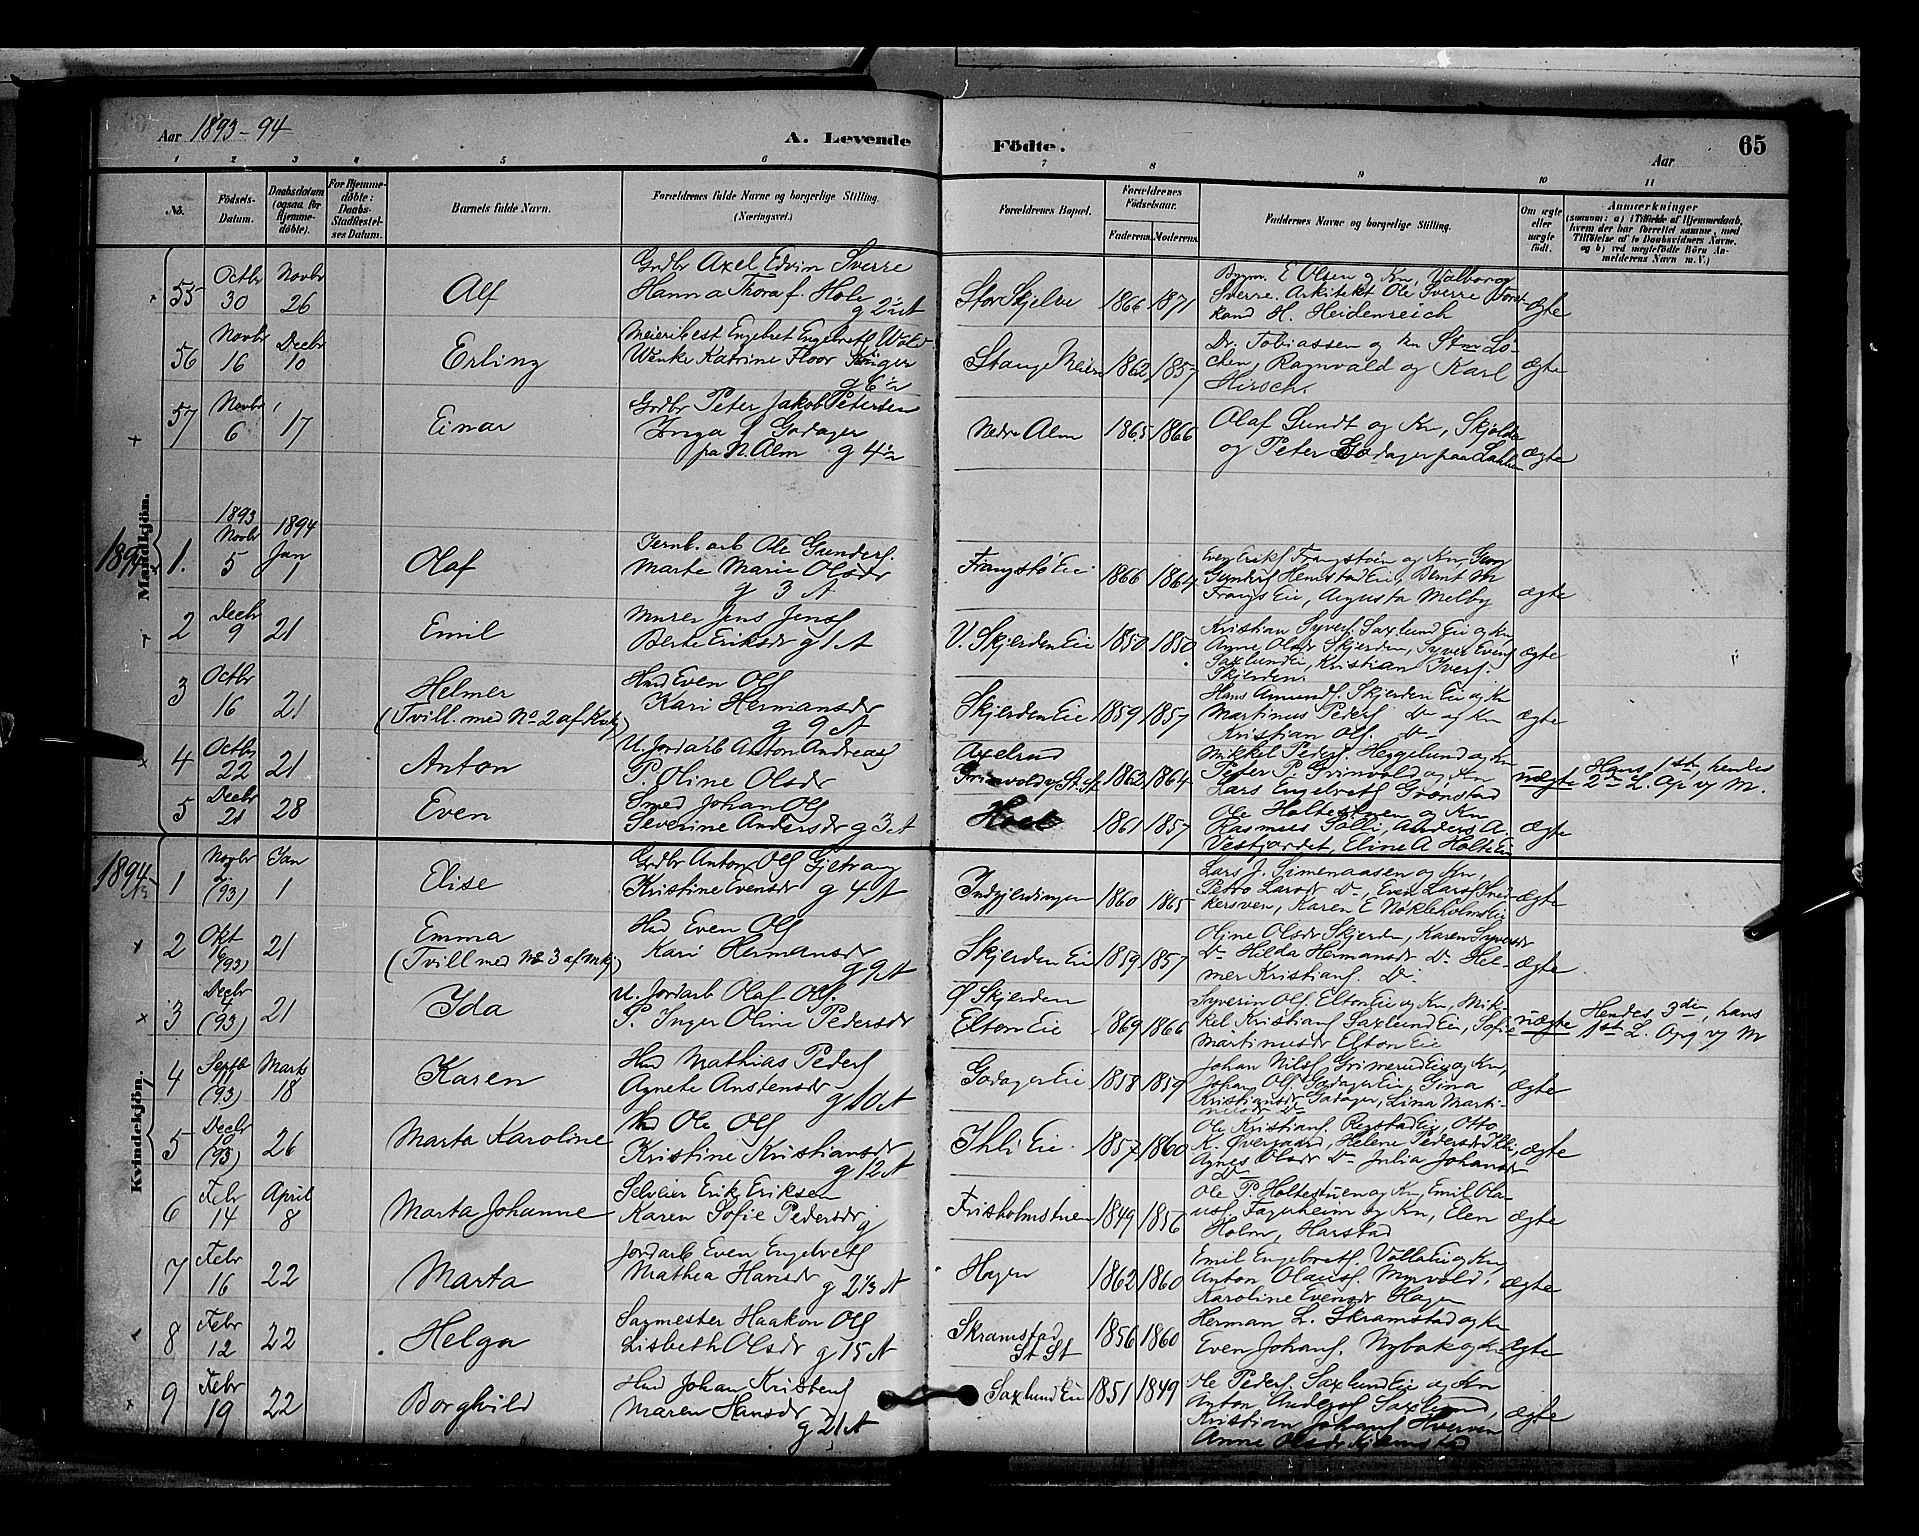 Aar 1893-94
A. Levende
Födte.
Aar
65
1 2 3 4 5 6 7 8 9 10 11
No.
Födsels-
Datum.
Daabsdatum
(ogsaa for
Hjemme-
döbte).
For Hjemme-
döbte:
Daabs-
Stadfæstel-
ses Datum.
Barnets fulde Navn.
Forældrenes fulde Navne og borgerlige Stilling.
(Næringsvei.)
Forældrenes Bopæl.
Forældrenes
Födselsaar.
Faderens. Moderens.
Faddernes Navne og borgerlige Stilling.
Om ægte
eller
uægte
født.
Anmærkninger
(saasom: a) i Tilfælde af Hjemmedaab,
hvem der har forrettet samme, med
Tilföielse af to Daabsvidners Navne.
og b) ved uægtefödte Börn An-
melderens Navn m. V.)
Mandkjön.
55
Octbr
30
Novbr
26
Alf
Grdbr Axel Edvin Sverre
Hanna Thora f. Hole
Stor Skjelve
1866 1871
E Olsen og Kn, Valborg
Sverre. Arkitekt Ole Sverre
kand H. Heidenreich
ægte
56
Novbr
16
Decbr
10
Erling
Meieribest Engebret Engebrets Wold
Katrine Floor
Stange Meieri
1862 1857
Dr. Tobiassen og Kn
Ragnvald og Karl
Hirsch.
ægte
57
Novbr
6
17
Einar
Grdbr Peter Jakob Petersen
Inga f Godager
paa N. Alm
Nedre Alm
1865 1866
Olaf Sundt og Kn,
og Peter Godager paa
ægte
1894
1.
1893
Novbr
5
1894
Jan
1
Olaf
Jernb. arb Ole Gunders.
Marte Marie Olsdr
g 3 A
1866 1864
Augusta Melby
ægte
2
Decbr
9
21
Emil
Murer Jens Jens
Berte Eriksdr g 1 A
V. Skjerden Eie
1850 1850
Kristian Syvers Saxlund Eie og Kn
Anne Olsdr Skjerden, Syver Evens
Saxlund Eie, Kristian Ivers.
Skjerden.
ægte
3
Octbr
16
21
Helmer
(Tvill. med No 2 af Kvkj)
Hmd Even Ols
Kari Hermansdr
g 9 A
Skjerden Eie
1859 1857
Hans Amunds. Skjerden Eie og Kn
Martinus Peders Do og Kn
Kristian Ols. Do
ægte
4
Octbr
22
21
Anton
U. Jordarb Anton Andreas
P. Oline Olsdr
Axelrud
1862 1864
Mikkel Peders. Heggelund og Kn
Peter P. Grinvold og Kn
Lars Engebrets Grønstad
uægte
Hans 1st, hendes
2den L. Opg v/ M.
5
Decbr
21
28
Even
Smed Johan Ols
Severine Andersdr g 3 A
1861 1857
Ole Holtestuen og Kn
Rasmus Solli, Anders A.
Vestjordet, Eline A Holt Eie
ægte
Kvindekjön.
1894
1
Novbr
(93)
Jan
1
Elise
Grdbr Anton Ols Gjetvang
Kristine Evensdr g 4 A
Indgjerdingen
1860 1865
Lars J. Simenaasen og Kn,
Petro Larsdr Do, Even Lars
Karen E
ægte
2
Okt
16
(93)
21
Emma
(Tvill med No 3 af Mkj)
Hmd Even Ols
Kari Hermansdr
g 9 A
Skjerden Eie
1859 1857
Oline Olsdr Skjerden, Karen Syversdr
Do Hilda Hermansdr Do Hel-
mer Kristians. Do
ægte
3
Decbr
4
(93)
21
Ida
U. Jordarb Olaf Ols.
P. Inger Oline Pedersdr
Ø Skjerden
Elton Eie
1869 1866
Syverin Ols. Elton Eie og Kn, Mik-
kel Kristians Saxlund Eie, Sofie
Martinusdr Elton Eie
uægte
Hendes 3die, hans
1st L. Opg v/ M
4
Septbr
11
(93)
Marts
18
Karen
Hmd Mathias Peders
Agnete Anstensdr
g 10 A
Godager Eie
1858 1859
Johan Nils Grimerud Eie og Kn,
Johan Ols. Godager Eie, Gina
Kristiansdr Godager, Lina Marti-
nusdr Do
ægte
5
Decbr
10
(93)
26
Marta Karoline
Hmd Ole Ols
Kristine Kristiansdr
g 12 A
Ihli Eie
1857 1860
Ole Kristians. Ringstad Eie, Otto
K. Øvergaard, Helene Pedersdr Ihli,
Agnes Olsdr Do Julia Johansdr
Do
ægte
6
Febr
14
April
8
Marta Johanne
Selveier Erik Eriksen
Karen Sofie Pedersdr g
Frisholmstuen
1849 1856
Ole P. Holtestuen og Kn, Emil Ola-
us. Fagnheim og Kn, Elen
Holm, Harstad
ægte
7
Febr
16
22
Marta
Jordarb Even Engebrets
Mathea Hansdr g 2 1/3 A
Hagen
1862 1860
Emil Engebrets. Volla Eie og Kn
Anton Olaus. Myrvold,
Karoline Evensdr Hagen
ægte
8
Febr
12
22
Helga
Sagmester Haakon Ols
Lisbeth Olsdr g 15 A
Skramstad
St St
1856 1860
Herman L. Skramstad og Kn
Even Johans. Nybak og Kn
ægte
9
Febr
19
22
Borghild
Hmd Johan Kristens
Maren Hansdr
g 21 A
Saxlund Eie
1851 1849
Ole Peders. Saxlund Eie og Kn
Anton Anders Saxlund,
Kristian Johans Hverven
Anne Olsdr
ægte